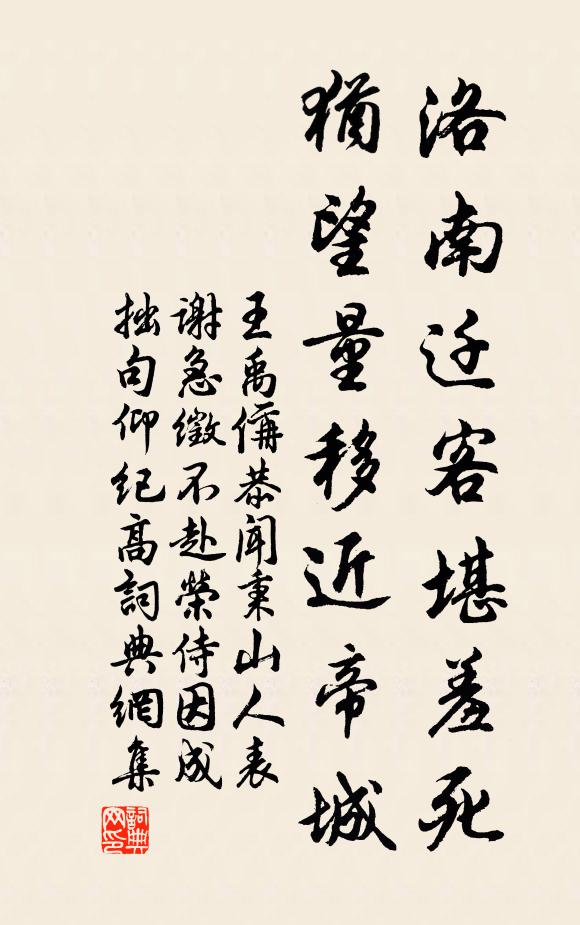 洛南迁客堪羞死
犹望量移近帝城
王禹偁恭闻秉山人表
谢急徵不赴荣侍因成
拙句仰纪高詞典網集
詞典
网印